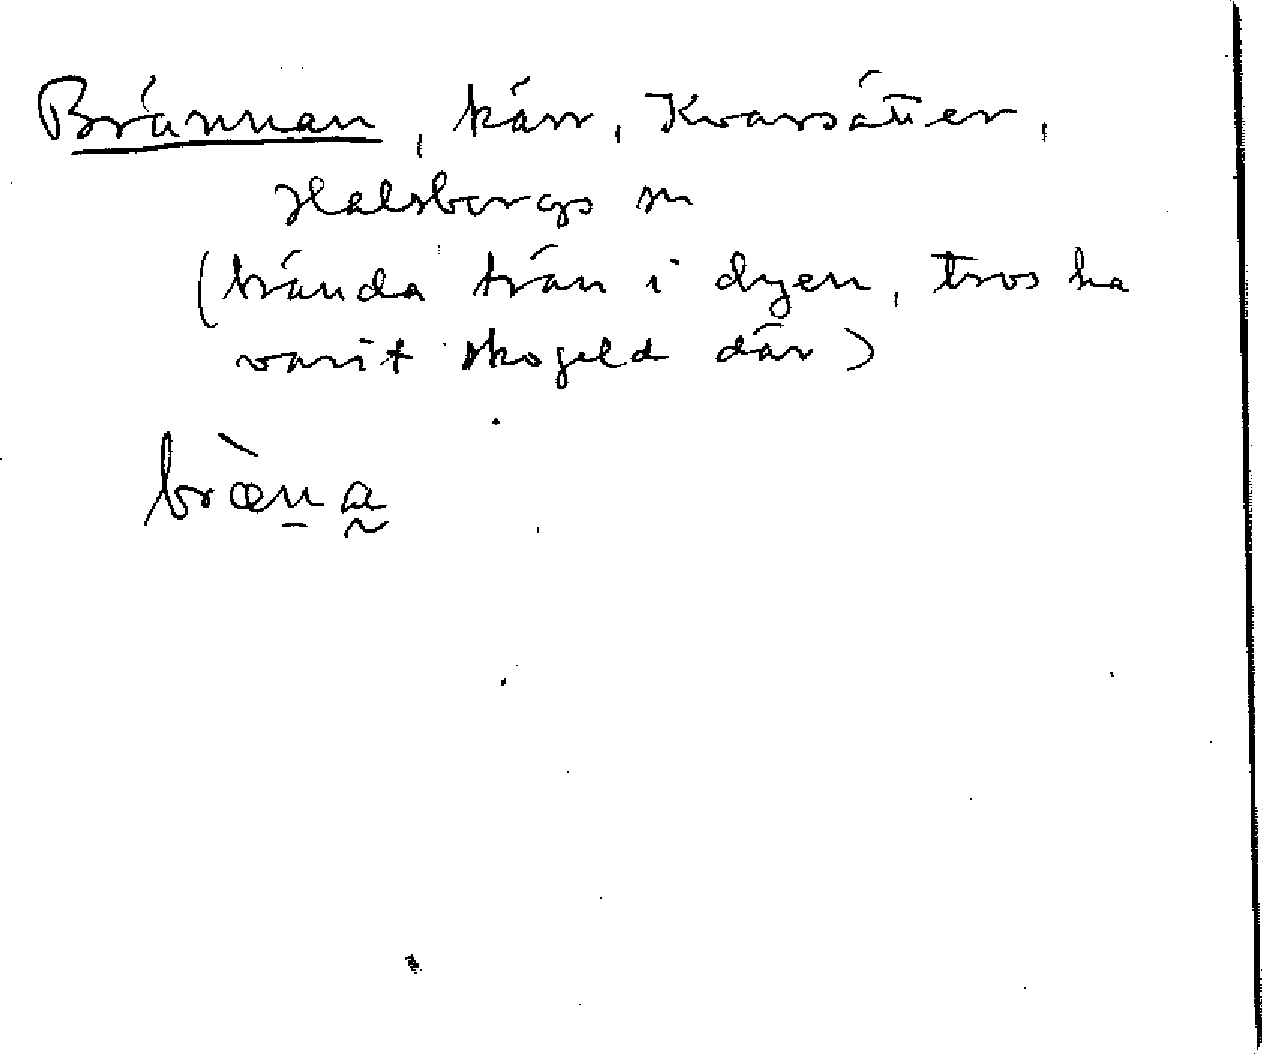 Brännan, kärr, Kvarsätter,
Halsbergs sn
(brända trän i dyen, tros ha
varit skogeld där)
bræ̀n̲a̰